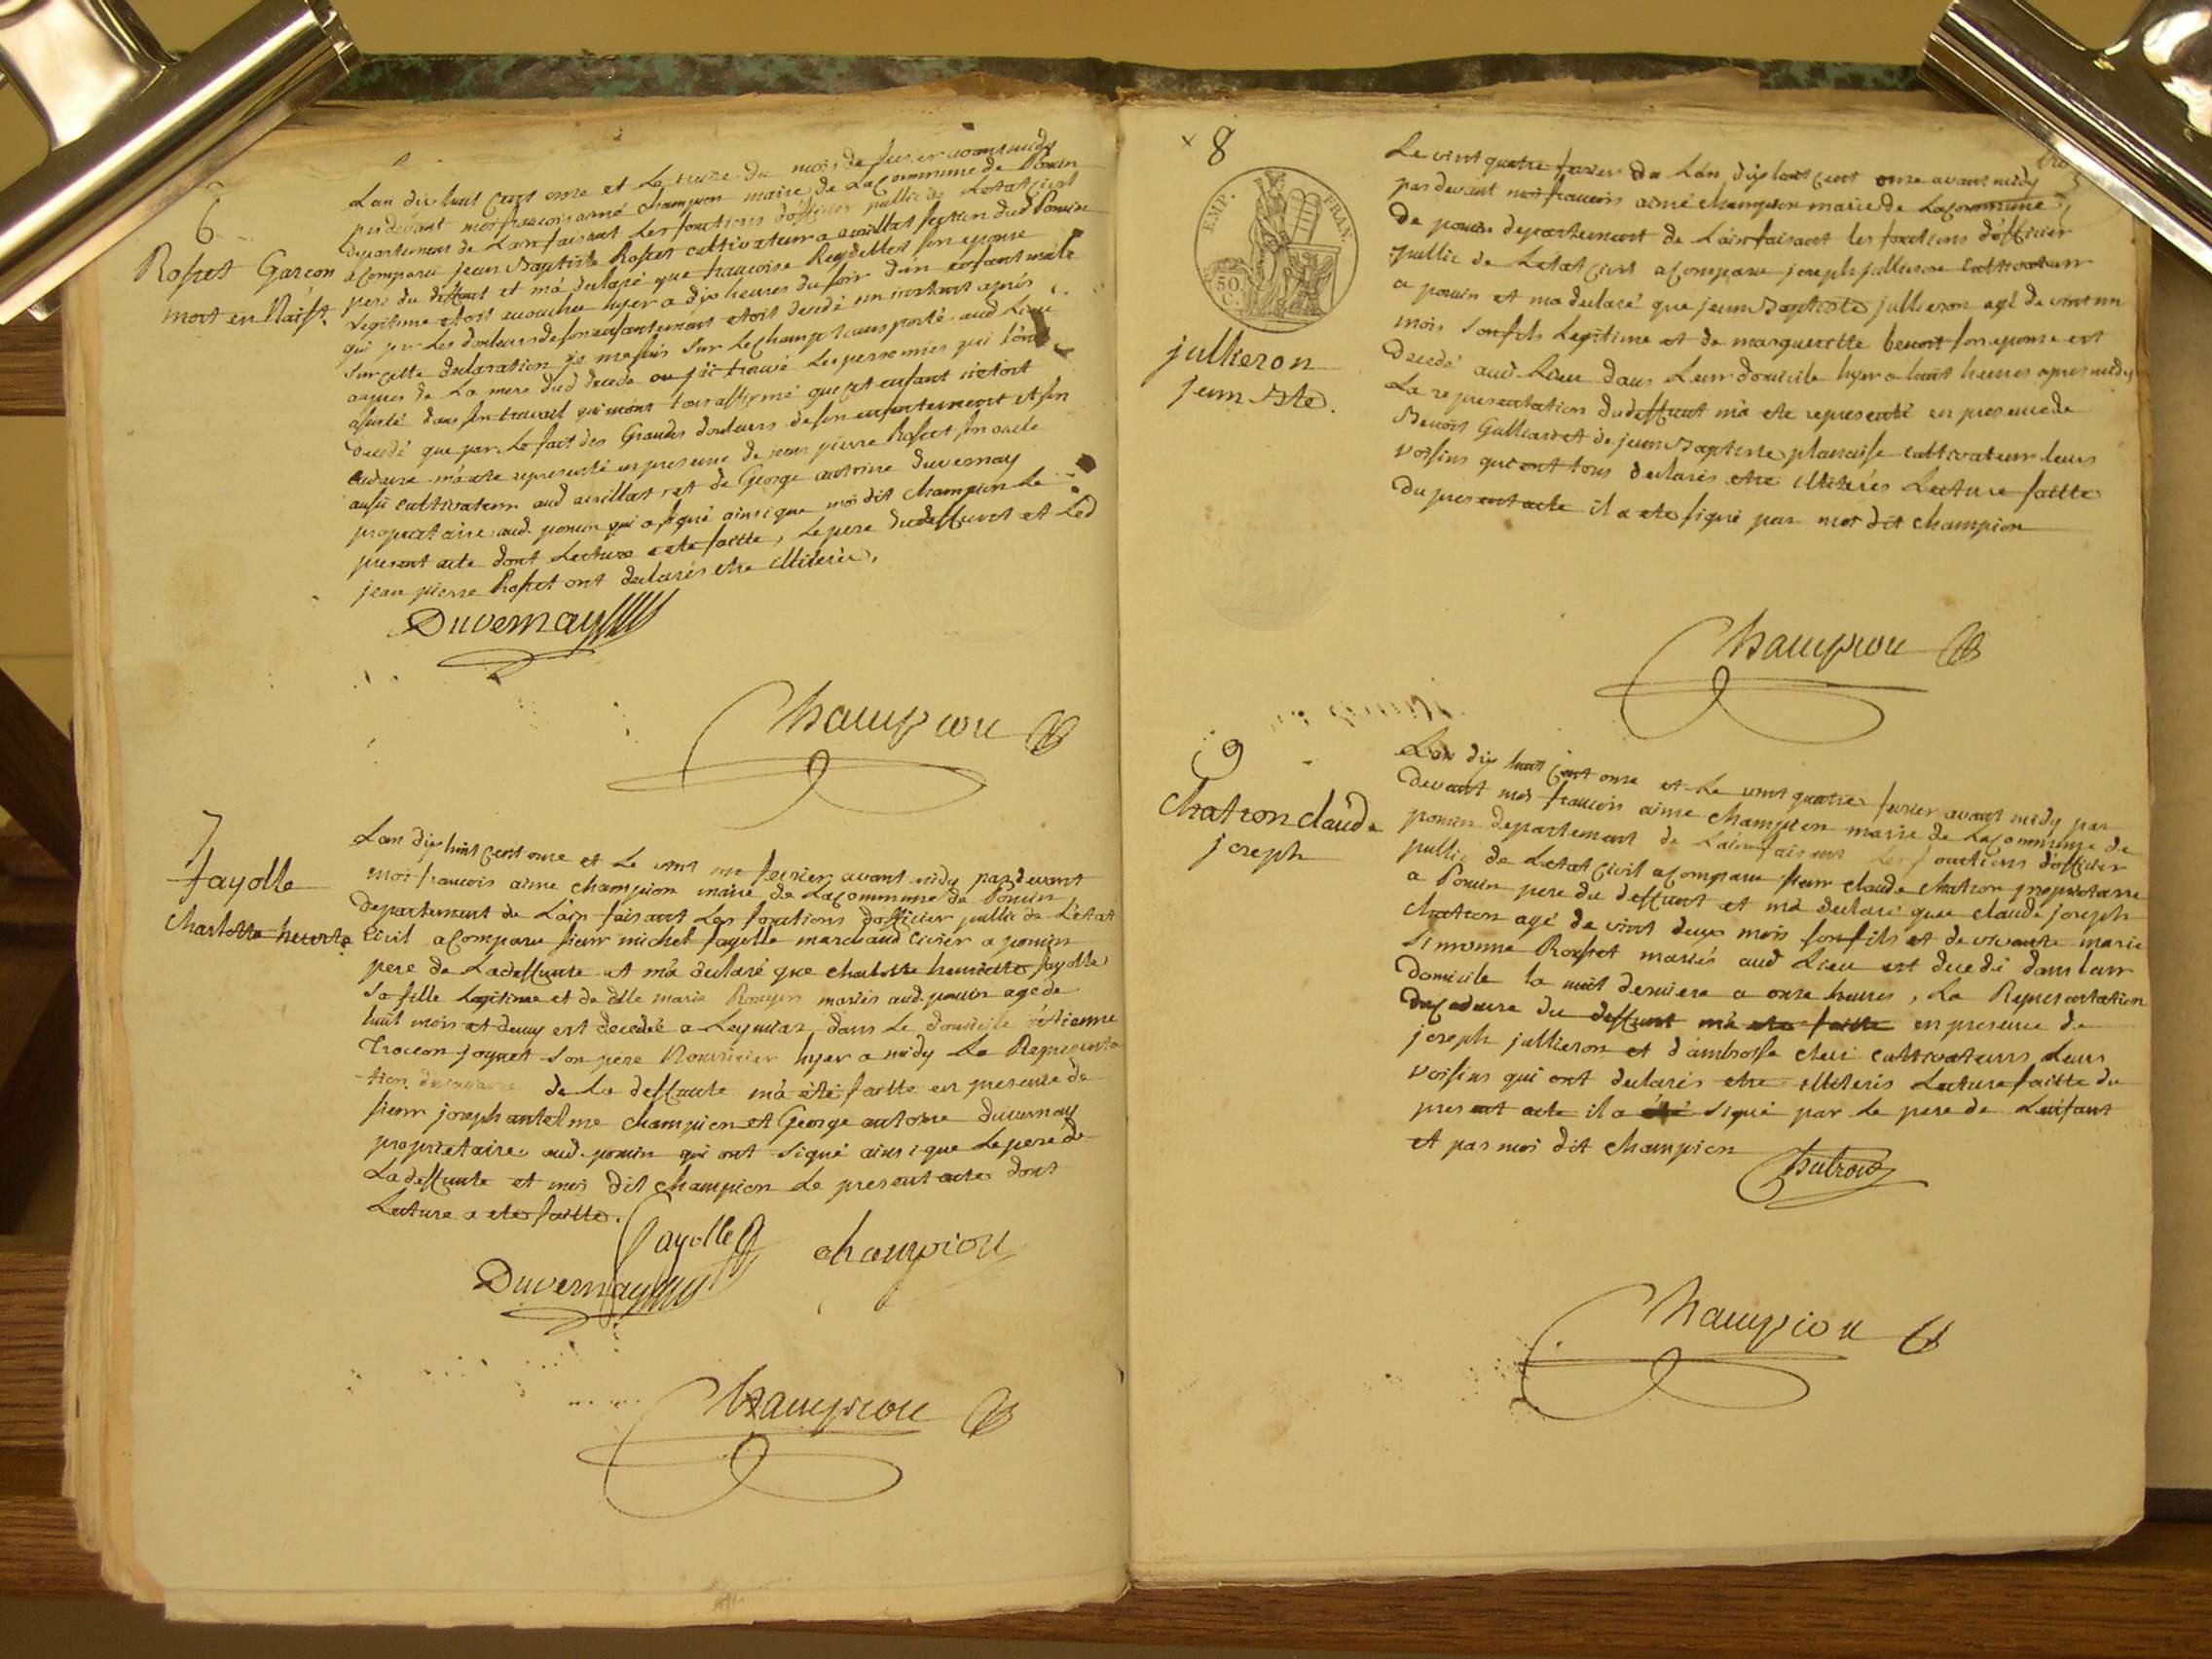 6
Rosset Garcon
mort en Naiss.
Lan dix huit cent onze et le treize du mois de fevrier avant midy
par devant moi francois aimé champion maire de la Commune de Poncin
departement de Lain faisant les fonctions dofficier public de Letat Civil
a Comparu jean Baptiste Rosset cultivateur a avrillat section dud Poncin
pere du deffunt et ma declaré que francoise Reydellet son epouse
Legitime etoit accouchée hyer a dix heures du soir dun enfant male
qui par les douleurs de son enfantement etoit decedé un instant aprés
Sur cette declaration je me suis sur le champ transporté aud Lieu
aupres de La mere dud decedé ou j'ai trouvé les personnes qui l'ont
assisté dans son travail qui m'ont tous affirmé que cet enfant n'etoit
decedé que par le fait des Grandes douleurs de son enfantement et son
cadavre m'a ete representé en presence de jean pierre Rosset son oncle
aussi cultivateur aud avrillat et de George antoine duvernay
propriataire aud. poncin qui a signé ainsi que moi dit champion le
present acte dont Lecture a ete faitte, Le pere dudeffunt et Led
jean pierre Rosset ont declarés etre illiterés,
Duvernay
Champion
7
fayolle
Charlotte heurte
Lan dix huit cent onze et Le vint un fevrier avant midy par devant
moi francois aime champion maire de La Commune de Poncin
departement de Lain faisant Les fonctions dofficier public de L'etat
Civil a Comparu sieur michel fayolle marchand Cirier a poncin
pere de La deffunte et m'a declaré que charlotte henriette fayolle
sa fille Legitime et de dlle marie mariés aud. poncin agée de
huit mois et demy est decedée a Leymiaz, dans Le domicile détienne
joynet son pere Nourricier hyer a midy La Representa
tion du cadavre de La deffunte m'a été faitte en presence de
sieur joseph antelme champion et George antoine duvernay
proprietaires aud. poncin qui ont signé ainsi que le pere de
La deffunte et moi dit champion Le present acte dont
Lecture a ete faitte.
fayolle champion
Duvernay
Champion
8
EMP. FRAN.
50 C.
jullieron
jean Bte.
Le vint quatre fevrier de Lan dix huit cent onze avant midy
par devant moi francois aimé champion maire de La commune
de poncin departement de Lain faisant les fonctions dofficier
public de Letat Civil a Comparu joseph jullieron cultivateur
a poncin et ma declaré que jean Baptiste jullieron agé de vint un
mois son fils Legitime et de marguerette benoit son epouse est
decedé aud Lieu dans Leur domicile hyer a huit heures apres midy
La representation du deffunt m'a ete representé en presence de
Benoit Galliard et de jean Baptiste planaise cultivateur leurs
voisins qui ont tous declarés etre illiterés Lecture faitte
du present acte il a ete signé par moi dit champion
Champion
9
Chatron claude
joseph
Lan dix huit cent onze et Le vint quatre fevrier avant midy par
devant moi francois aime champion maire de La Commune de
poncin departement de Lain faisant Les fonctions dofficier
public de Letat Civil a Comparu sieur claude chatron propriotaire
a Poncin pere du deffunt et ma declaré que claude joseph
chatron agé de vint deux mois son fils et de vivante marie
simonne Rousset mariés aud Lieu est decedé dans leur
domicile la nuit derniere a onze heures, La Representation
du cadavre du deffunt m'a ete faitte en presence de
joseph jullieron et d'ambroise clerc cultivateurs Leurs
voisins qui ont declarés etre illiterés Lecture faitte du
present acte il a été signé par Le pere de Lenfant
et par moi dit champion
Chatron
Champion